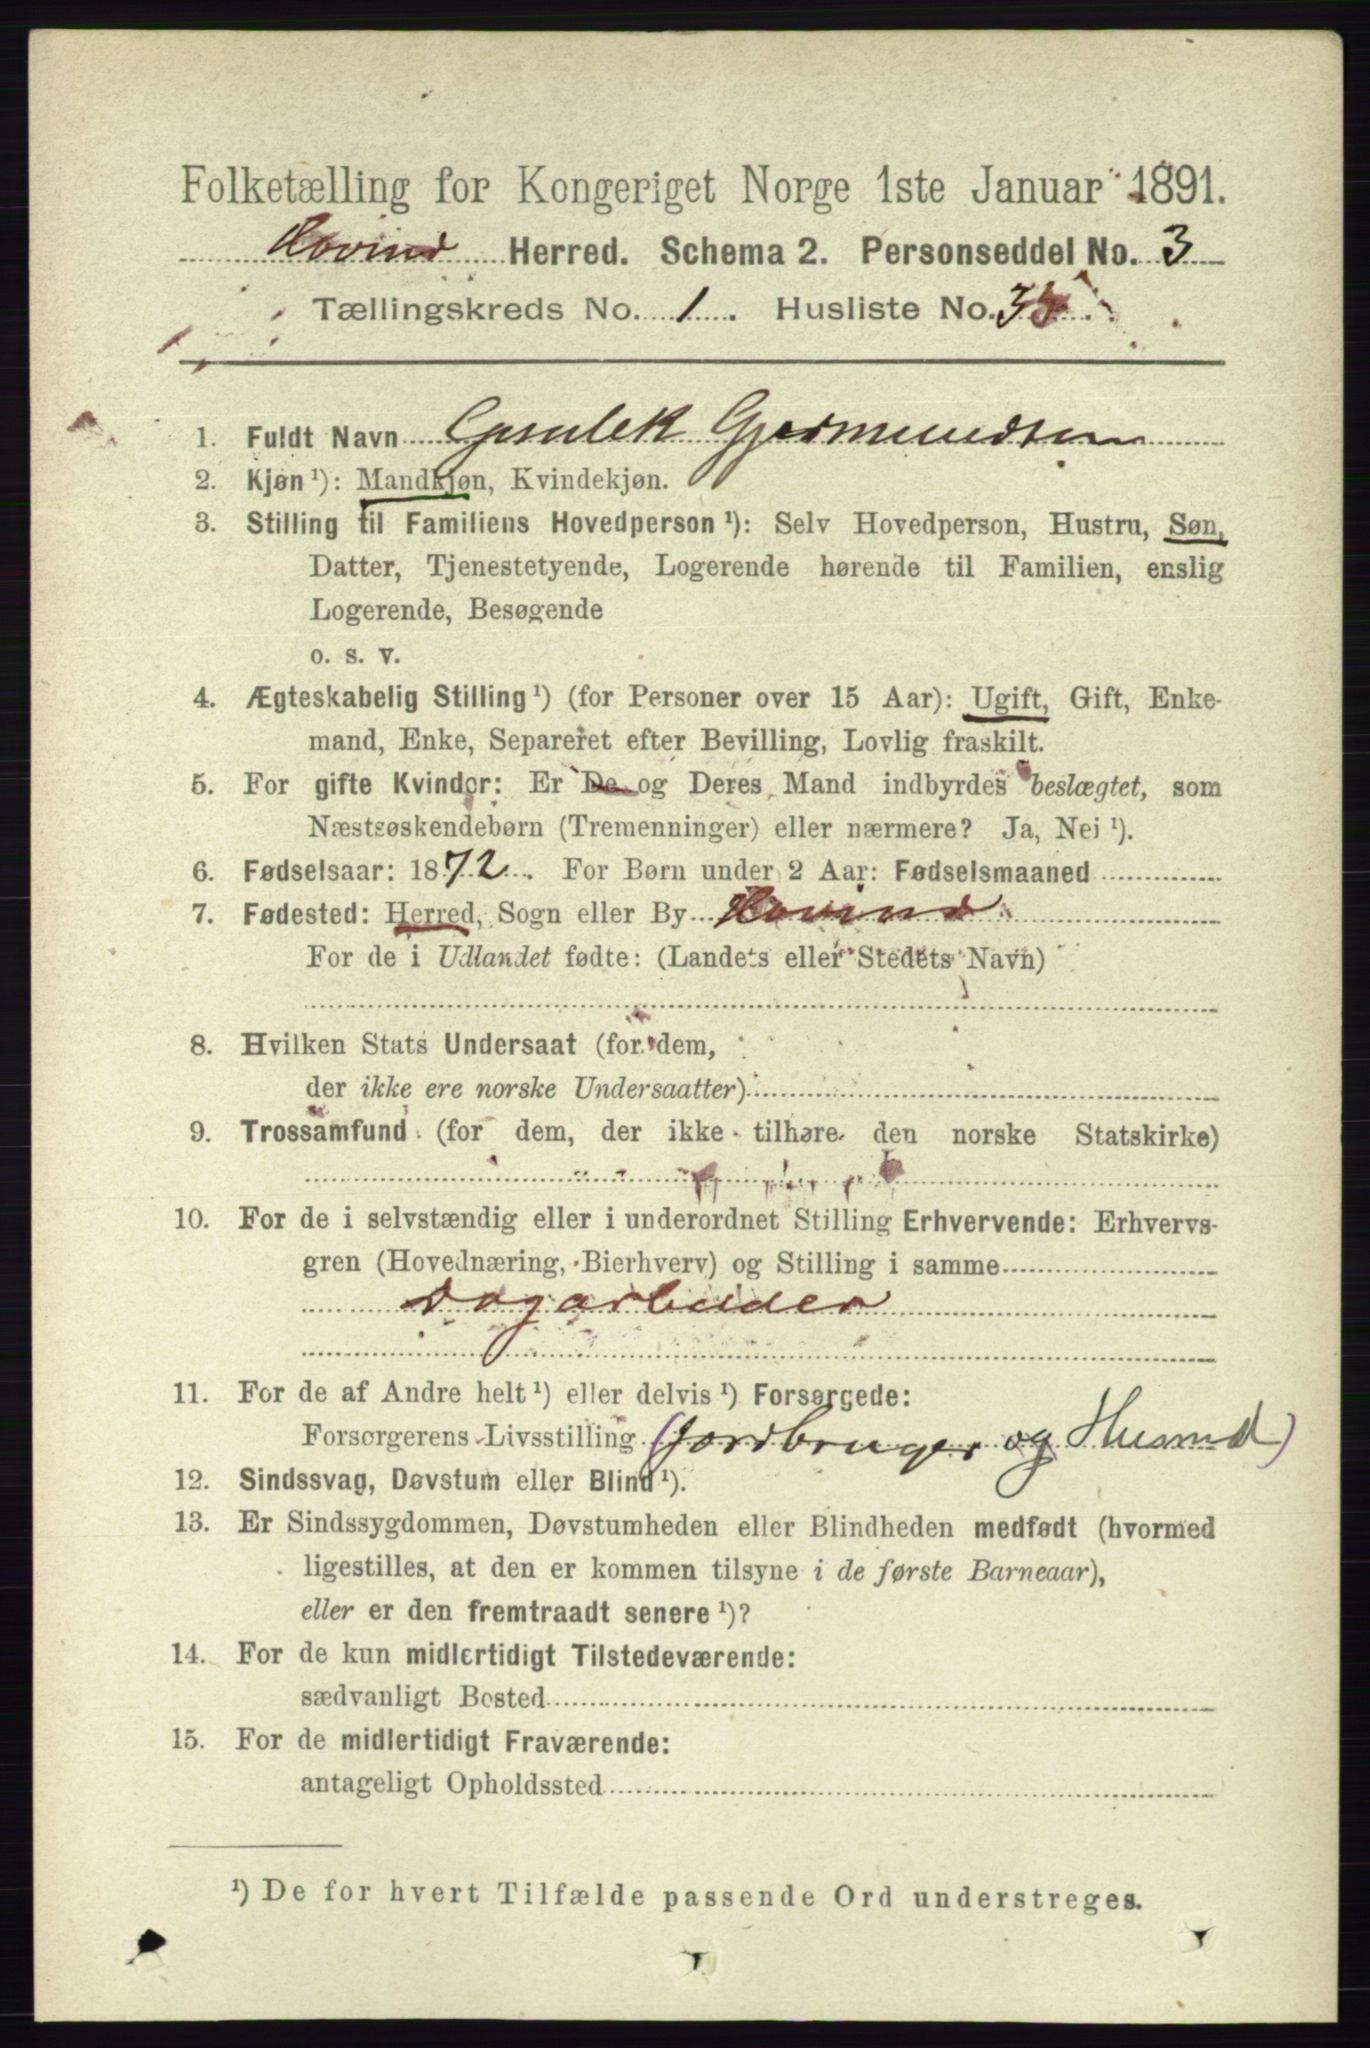 Folketælling for Kongeriget Norge 1ste Januar 1891.
Hovind Herred. Schema 2. Personseddel No. 3
Tællingskreds No. 1. Husliste No.
1. Fuldt Navn Gjermundsen
2. Kjøn ¹): Mandkjøn, Kvindekjøn.
3. Stilling til Familiens Hovedperson ¹): Selv Hovedperson, Hustru, Søn,
Datter, Tjenestetyende, Logerende hørende til Familien, enslig
Logerende, Besøgende
o. s. v.
4. Ægteskabelig Stilling ¹) (for Personer over 15 Aar): Ugift, Gift, Enke-
mand, Enke, Separeret efter Bevilling, Lovlig fraskilt.
5. For gifte Kvinder: Er De og Deres Mand indbyrdes beslægtet, som
Næstsøskendebørn (Tremenninger) eller nærmere? Ja, Nei ¹).
6. Fødselsaar: 1872. For Børn under 2 Aar: Fødselsmaaned
7. Fødested: Herred, Sogn eller By Hovind
For de i Udlandet fødte: (Landets eller Stedets Navn)
8. Hvilken Stats Undersaat (for dem,
der ikke ere norske Undersaatter)
9. Trossamfund (for dem, der ikke tilhøre den norske Statskirke)
10. For de i selvstændig eller i underordnet Stilling Erhvervende: Erhvervs-
gren (Hovednæring, Bierhverv) og Stilling i samme
Dagarbeider
11. For de af Andre helt ¹) eller delvis ¹) Forsørgede:
Forsørgerens Livsstilling (Jordbruger og Husmd)
12. Sindssvag, Døvstum eller Blind ¹).
13. Er Sindssygdommen, Døvstumheden eller Blindheden medfødt (hvormed
ligestilles, at den er kommen tilsyne i de første Barneaar),
eller er den fremtraadt senere ¹)?
14. For de kun midlertidigt Tilstedeværende:
sædvanligt Bosted
15. For de midlertidigt Fraværende:
antageligt Opholdssted
¹) De for hvert Tilfælde passende Ord understreges.